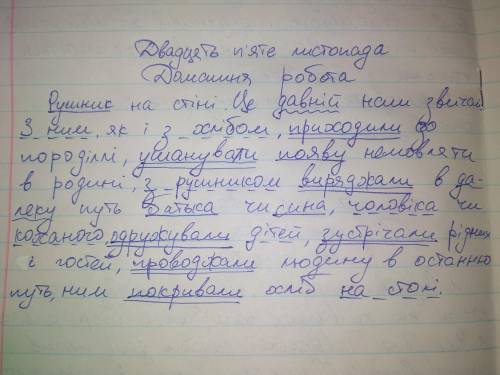 Двадцеть п'яте листопада
Домашня робота
Рушник на стіні. Це давній наш звичай
З ним, як і з хлібом, приходили до
породіллі, ушанувати появу немовляти
в родині, з рушником виряджали в да-
леку путь батька чи сина, чоловіка чи
коханого, одружували дітей, зустрічали рідних
і гостей, проводжали людину в останню
путь, ним покривали хліб на столі.